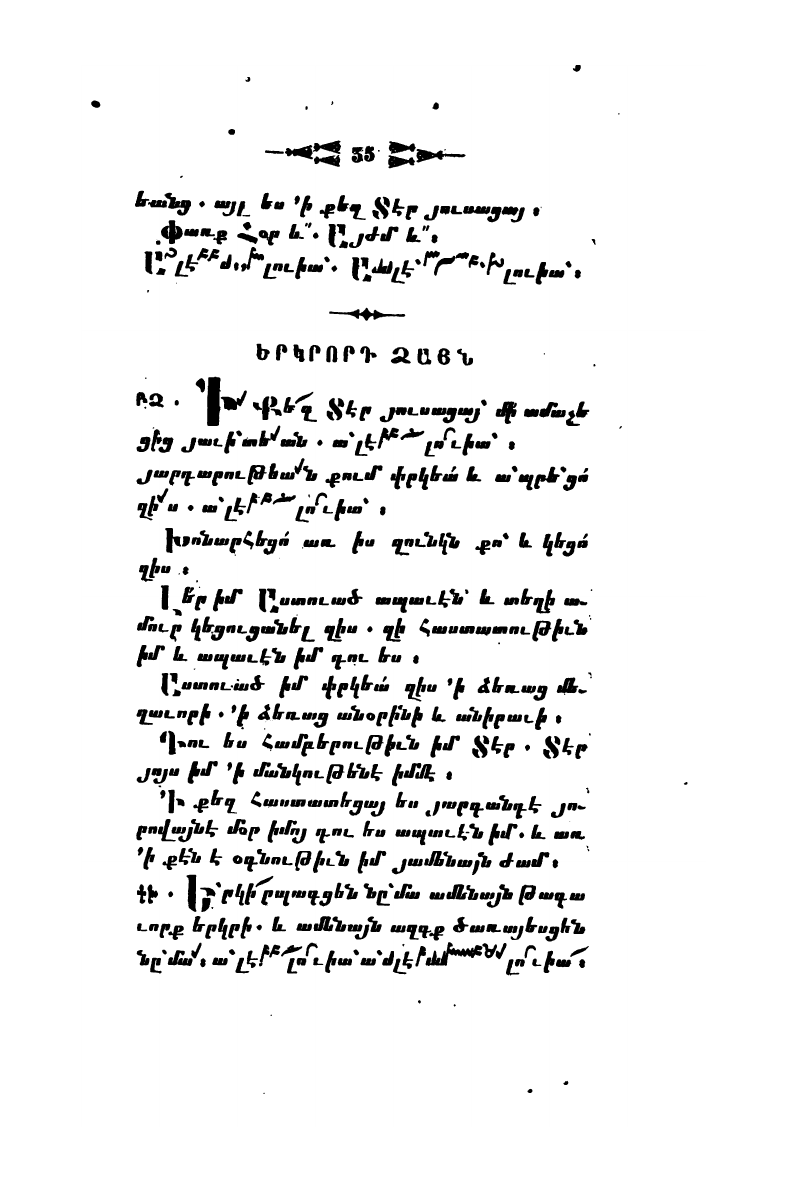 35
եանց ․ այլ ես ՚ի քեզ Տէր յուսացայ ։
Փառք Հօր և՛՛․ Այժմ և՛՛։
Ալէլուիա՝․ Ալէլուիա՝ ։
ԵՐԿՐՈՐԴ ՁԱՅՆ
ԲՁ ․ ՚Ի Քե՛զ Տէր յուսացայ՝ մի ամաչե
ցից յաւի՝տեան ․ ա՝լէլուիա՝ ։
յարդարութեա՝ն քում փրկեա՛ և ա՝պրե՝ցո՛
զի՛ս ․ ա՝լէլուիա՝ ։
Խոնարհեցո՛ առ իս զունկն քո՝ և կեցո՛
զիս ։
Լե՛ր իմ Աստուած ապաւէն՝ և տեղի ա֊
մուր՝ կեցուցանել զիս ․ զի հաստատութիւն
իմ և ապաւէն իմ դու ես ։
Աստուած իմ փրկեա՛ զիս ՚ի ձեռաց մե֊
ղաւորի ․ ՚ի ձեռաց անօրինի և անիրաւի ։
Դու ես համբերութիւն իմ Տէր ․ Տէր
յոյս իմ ՚ի մանկութենէ իմմէ ։
՚Ի քեզ հաստատեցայ ես յարգանդէ յո֊
րովայնէ մօր իմոյ դու ես ապաւէն իմ․ և առ
՚ի քէն է օգնութիւն իմ յամենայն ժամ ։
ՔԻ ․ Երկի՛րպագցեն նը՝մա ամենայն թագա
ւորք երկրի․ և ամենայն ազգք ծառայեսցեն
նը՝մա՛։ ա՝լէլուիա՝ա՝լէլուիա՛ ։